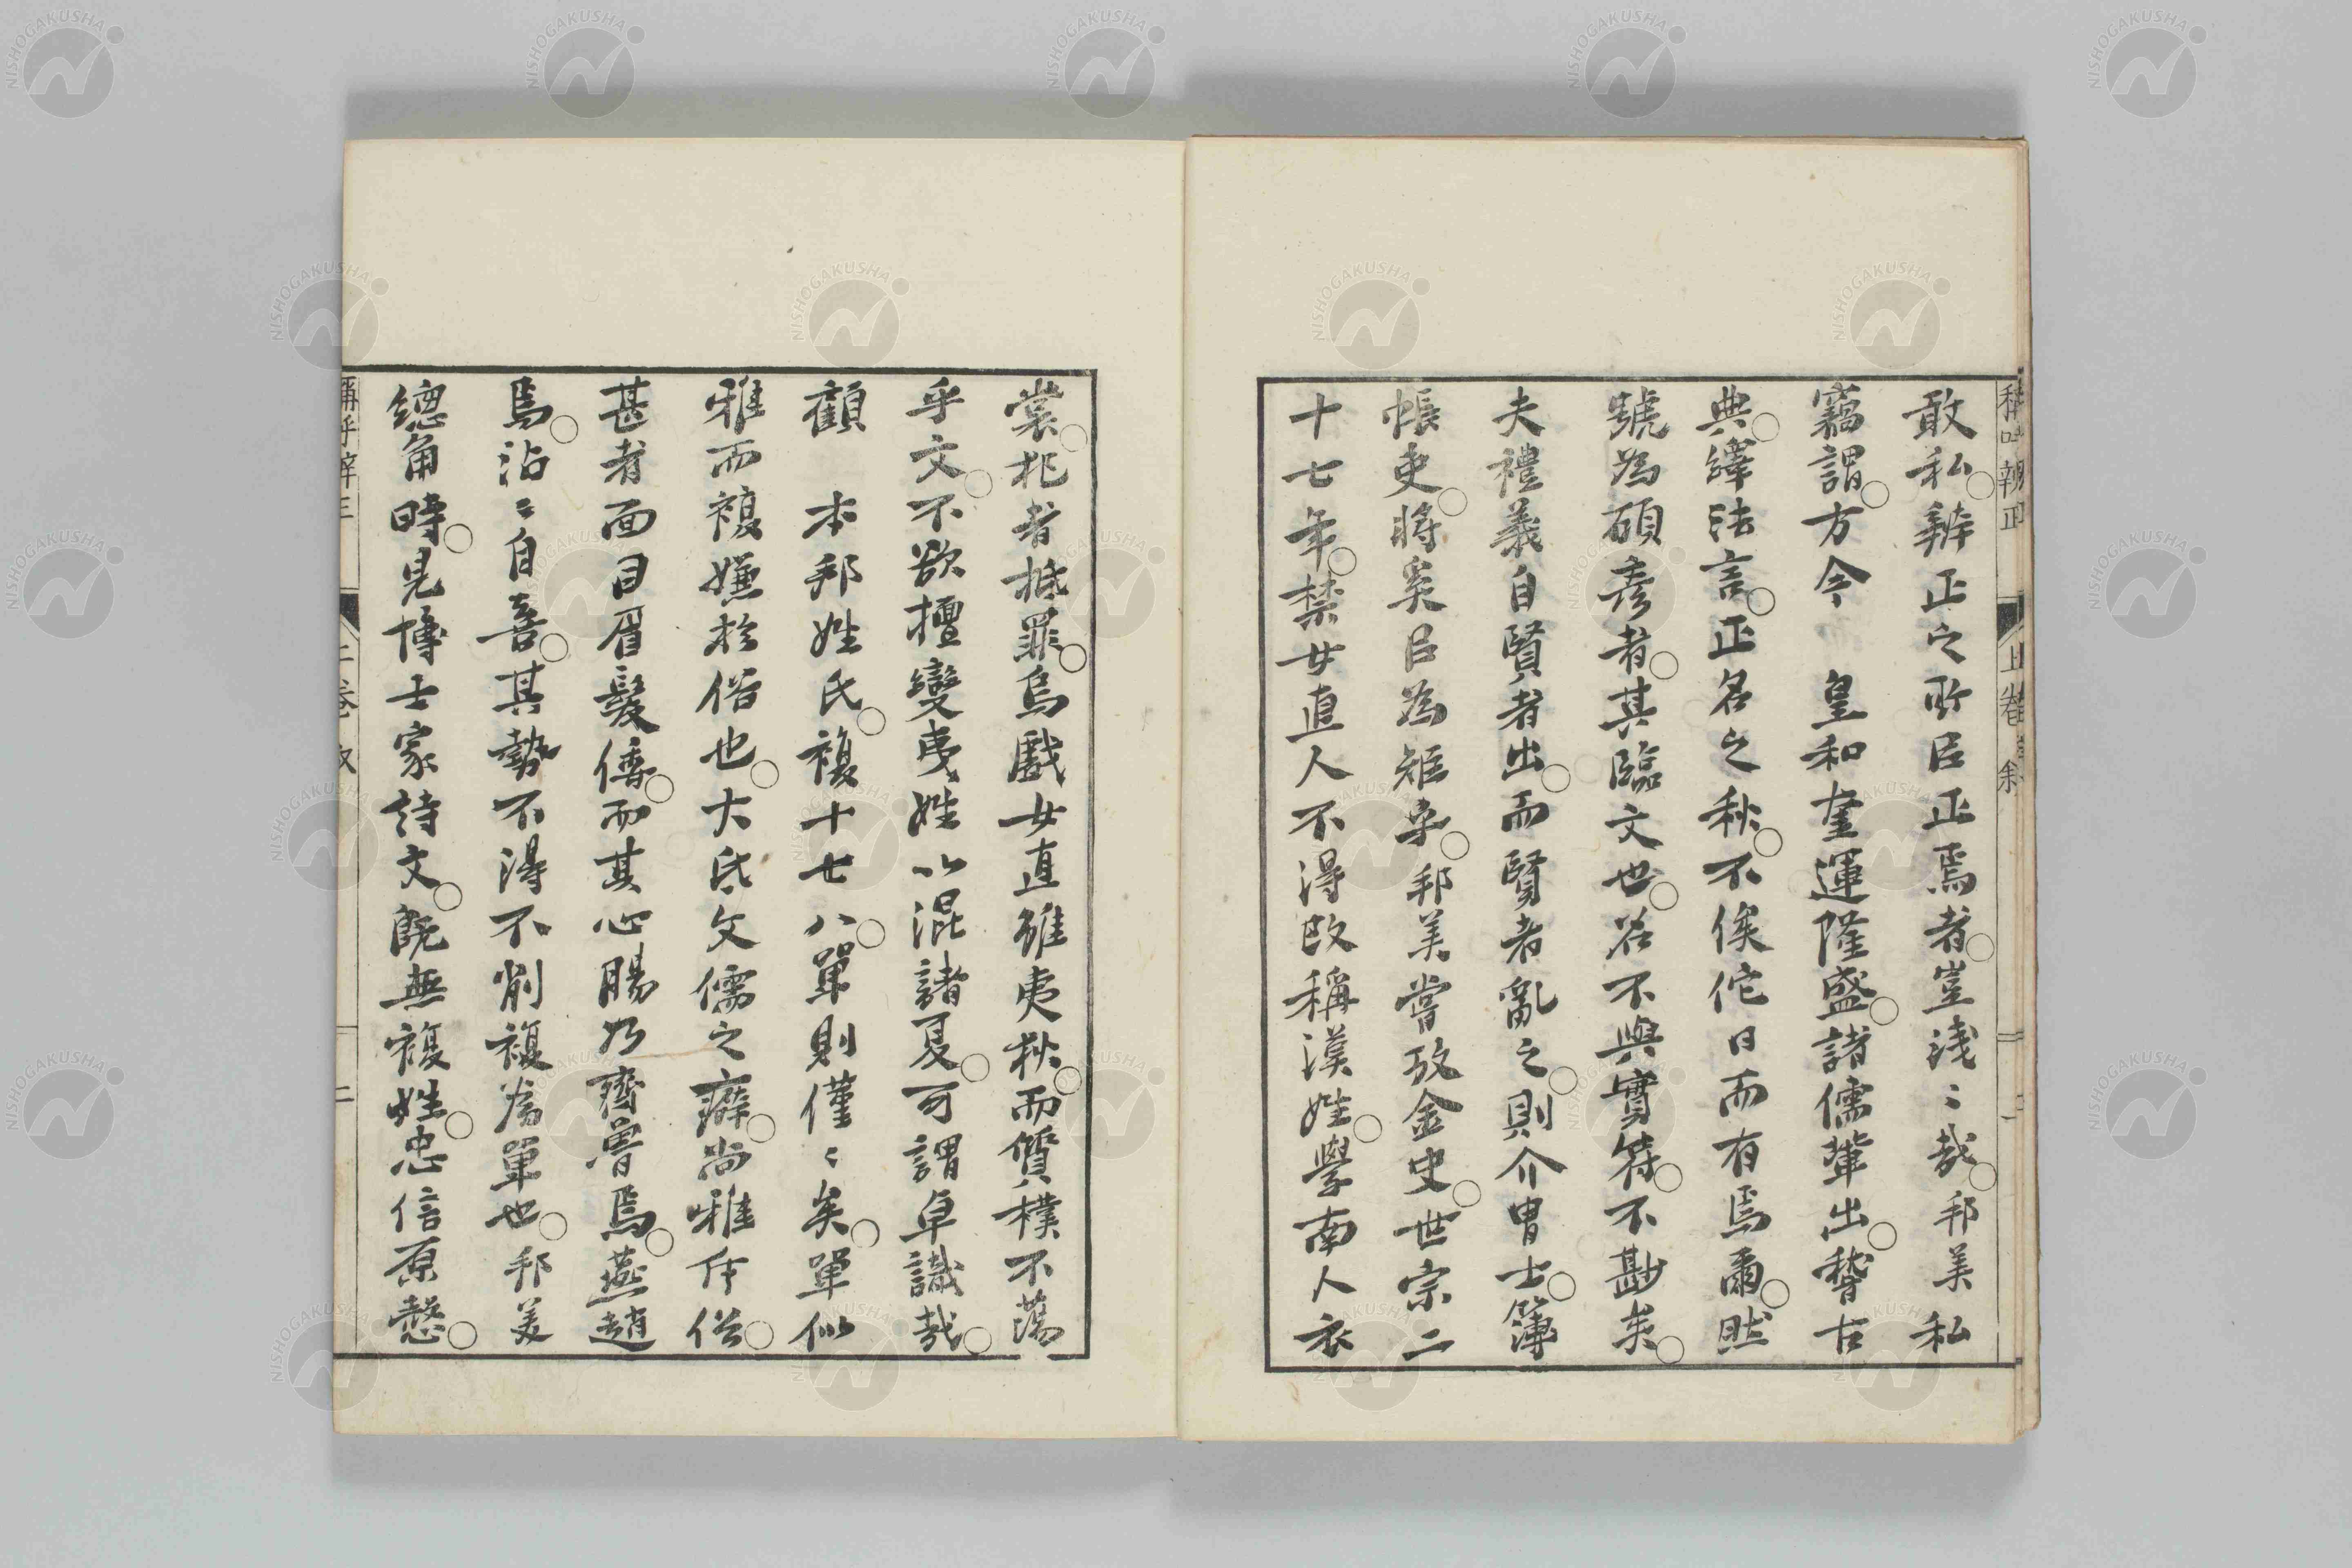 敢私。辨正之所㠯正焉者。豈淺〻哉。邦美私
竊謂。方今　皇和奎運隆盛。諸儒輩出。稽古
典。繹法言。正名之秋。不俟佗日而有焉爾。然
號為碩彥者。其臨文也。名不與實符。不尠矣。
夫禮義自賢者出。而賢者亂之。則介冑士簿
帳吏。將奚㠯為矩乎。邦美嘗攷金史。世宗二
十七年。禁女直人不得改稱漢姓。學南人衣
裳。犯者抵罪。烏戲女直雖夷狄。而質樸不蕩
乎文。不欲擅變夷姓以混諸夏。可謂卓識哉。
顧　本邦姓氏。複十七八。單則僅〻矣。單似
雅而複嫌於俗也。大氐文儒之癖。尚雅斥俗。
甚者面目眉髮倭。而其心腸乃齊魯焉。燕趙
焉。沾〻自喜。其勢不得不削複為單也。邦美
總角時。見博士家詩文。既無複姓。忠信原愨。
稱呼辨正
上卷 叙
一
二